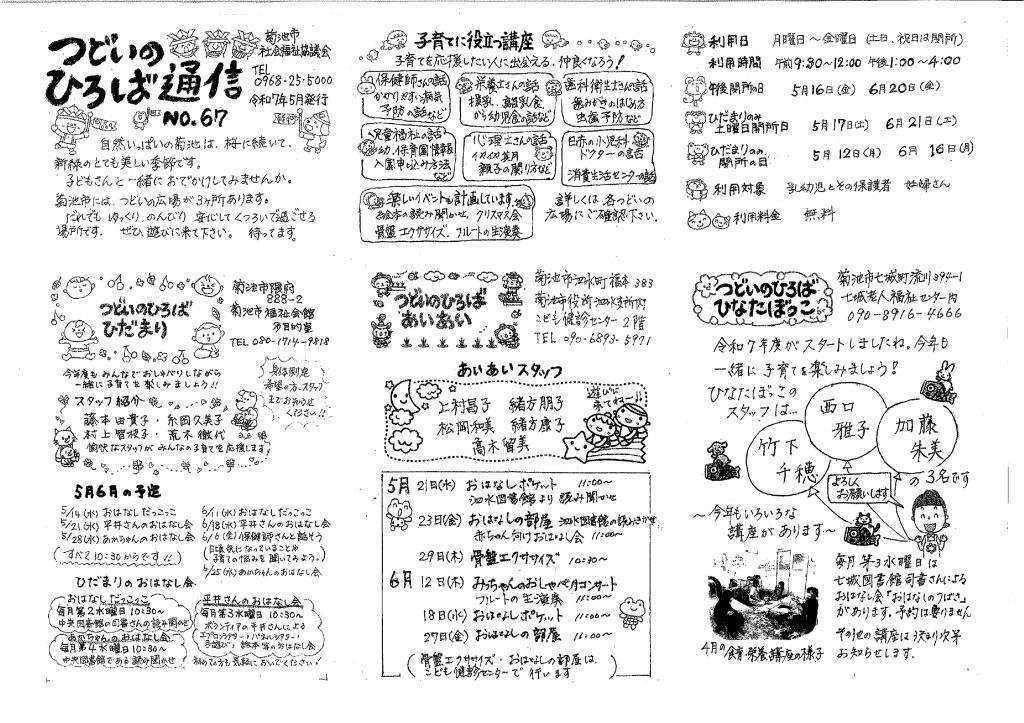 つどいの
ひろば通信
NO.67
菊池市
社会福祉協議会
TEL
0968-25-5000
令和7年5月発行
自然いっぱいの菊池は、桜に続いて、
新緑のとても美しい季節です。
子どもさんと一緒におでかけしてみませんか。
菊池市には、つどいの広場が3ヶ所あります。
だれでもゆっくり、のんびり 安心してくつろいで過ごせる
場所です。 ぜひ、遊びに来て下さい。 待ってます。
子育てに役立つ講座
子育てを応援したい人に出会える、仲良くなろう!
保健師さんの話
かかりやすい病気
予防の話など
栄養士さんの話
授乳、離乳食
から幼児食の話など
歯科衛生士さんの話
歯みがきのしかた
虫歯予防など
児童福祉の話
幼、保育園情報
入園申し込み方法
など
心理士さんの話
イヤイヤ期
親子の関り方など
日赤の小児科
ドクターの話
消費生活センターの話
楽しいイベントも計画しています。
絵本の読み聞かせ、クリスマス会
骨盤エクササイズ、フルートの生演奏
詳しくは、各つどいの
広場にご確認下さい。
利用日 月曜日~金曜日(土日、祝日は閉所)
利用時間 午前9:30~12:00 午後1:00~4:00
午後閉所の日 5月16日(金) 6月20日(金)
ひだまりのみ
土曜日開所日 5月17日(土) 6月21日(土)
ひだまりのみ
閉所の日 5月12日(月) 6月16日(月)
利用対象 乳幼児とその保護者 妊婦さん
利用料金 無料
つどいのひろば
ひだまり
菊池市隈府
888-2
菊池市福祉会館
多目的室
TEL 080-1714-9818
今年度もみんなでおしゃべりしながら
一緒に子育てを楽しみましょう!!
身体測定
希望の方、スタッフ
までお知らせ
ください!!
スタッフ紹介
藤本由貴子・糸岡久美子
村上智枝子・荒木徹代
愉快なスタッフがみんなの子育てを応援します!
5月6月の予定
5/14(水)おはなしだっこっこ
5/21(水)平井さんのおはなし会
5/28(水)あかちゃんのおはなし会
(すべて10:30からです!!)
6/11(水)おはなしだっこっこ
6/18(水)平井さんのおはなし会
6/6(金)保健師さんと話そう
(日頃気になっていることや
子育ての悩みを聞いてみよう。)
6/25(水)あかちゃんのおはなし会
ひだまりのおはなし会
おはなしだっこっこ
毎月第2水曜日10:30~
中央図書館の司書さんの読み聞かせ
あかちゃんのおはなし会
毎月第4水曜日10:30~
中央図書館である読み聞かせ
平井さんのおはなし会
毎月第3水曜日10:30~
ボランティアの平井さんによる
エプロンシアター・パネルシアター
手遊び・絵本等のおはなし会
初めての方も気軽においでください!
つどいのひろば
あいあい
菊池市泗水町福本383
菊池市役所泗水支所内
こども健診センター2階
TEL 090-6893-5971
あいあいスタッフ
上村昌子 緒方朋子
松岡和美 緒方康子
高木留美
遊びに
来てねー!!
5月 21日(水) おはなしポケット 11:00~
泗水図書館より読み聞かせ
23日(金) おはなしの部屋 泗水図書館の読みきかせ
赤ちゃん向けおはなし会 11:00~
29日(木) 骨盤エクササイズ 10:30~
6月 12日(木) みっちゃんのおしゃべりコンサート
フルートの生演奏 11:00~
18日(水) おはなしポケット 11:00~
27日(金) おはなしの部屋 11:00~
(骨盤エクササイズ・おはなしの部屋は、
こども健診センターで行います)
つどいのひろば
ひなたぼっこ
菊池市七城町流川394-1
七城老人福祉センター内
090-8916-4666
令和7年度がスタートしましたね。今年も
一緒に子育てを楽しみましょう!
ひなたぼっこの
スタッフは…
竹下
千穂
西口
雅子
加藤
朱美
の3名です
よろしく
お願いします
~今年もいろいろな
講座があります~
毎月第3水曜日は
七城図書館司書さんによる
おはなし会「おはなしのつばさ」
があります。予約は要りません
その他の講座は決まり次第
お知らせします。
4月の食育・栄養講座の様子